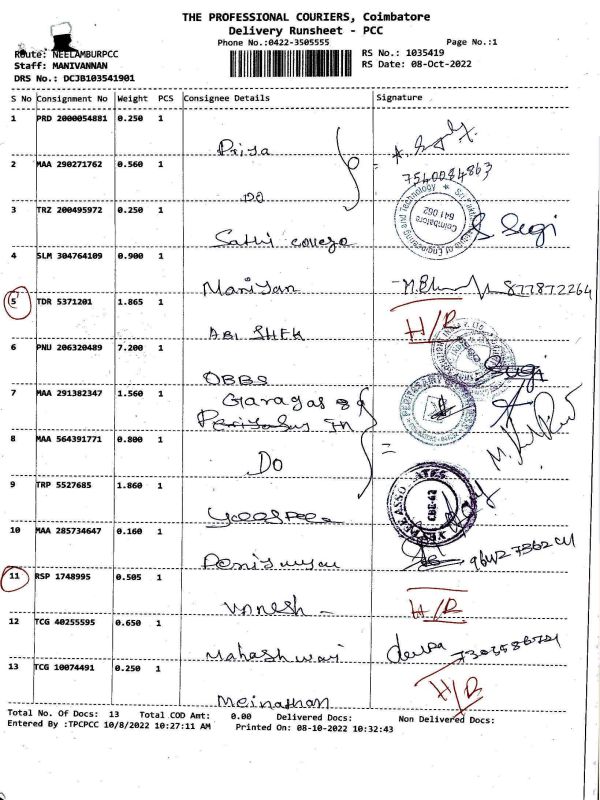 THE PROFESSIONAL COURIERS, Coimbatore
Delivery Runsheet - PCC
Phone No.:0422-3505555 Page No.:1
Route: NEELAMBURPCC RS No.: 1035419
Staff: MANIVANNAN RS Date: 08-Oct-2022
DRS No.: DCJB103541901
S No Consignment No Weight PCS Consignee Details Signature
1 PRD 2000054881 0.250 1
Priya
2 MAA 290271762 0.560 1 7540084863
DO
3 TRZ 200495972 0.250 1
Sathi Sugi
4 SLM 304764109 0.900 1
Mariyan 877872264
5 TDR 5371201 1.865 1 H/R
ABI SHEK
6 PNU 206320489 7.200 1
OBBS Sugi
7 MAA 291382347 1.560 1
8 MAA 564391771 0.800 1
Do
9 TRP 5527685 1.860 1
10 MAA 285734647 0.160 1
11 RSP 1748995 0.505 1 H/R
12 TCG 40255595 0.650 1
13 TCG 10074491 0.250 1 H/R
Meinathan
Total No. Of Docs: 13 Total COD Amt: 0.00 Delivered Docs: Non Delivered Docs:
Entered By :TPCPCC 10/8/2022 10:27:11 AM Printed On: 08-10-2022 10:32:43